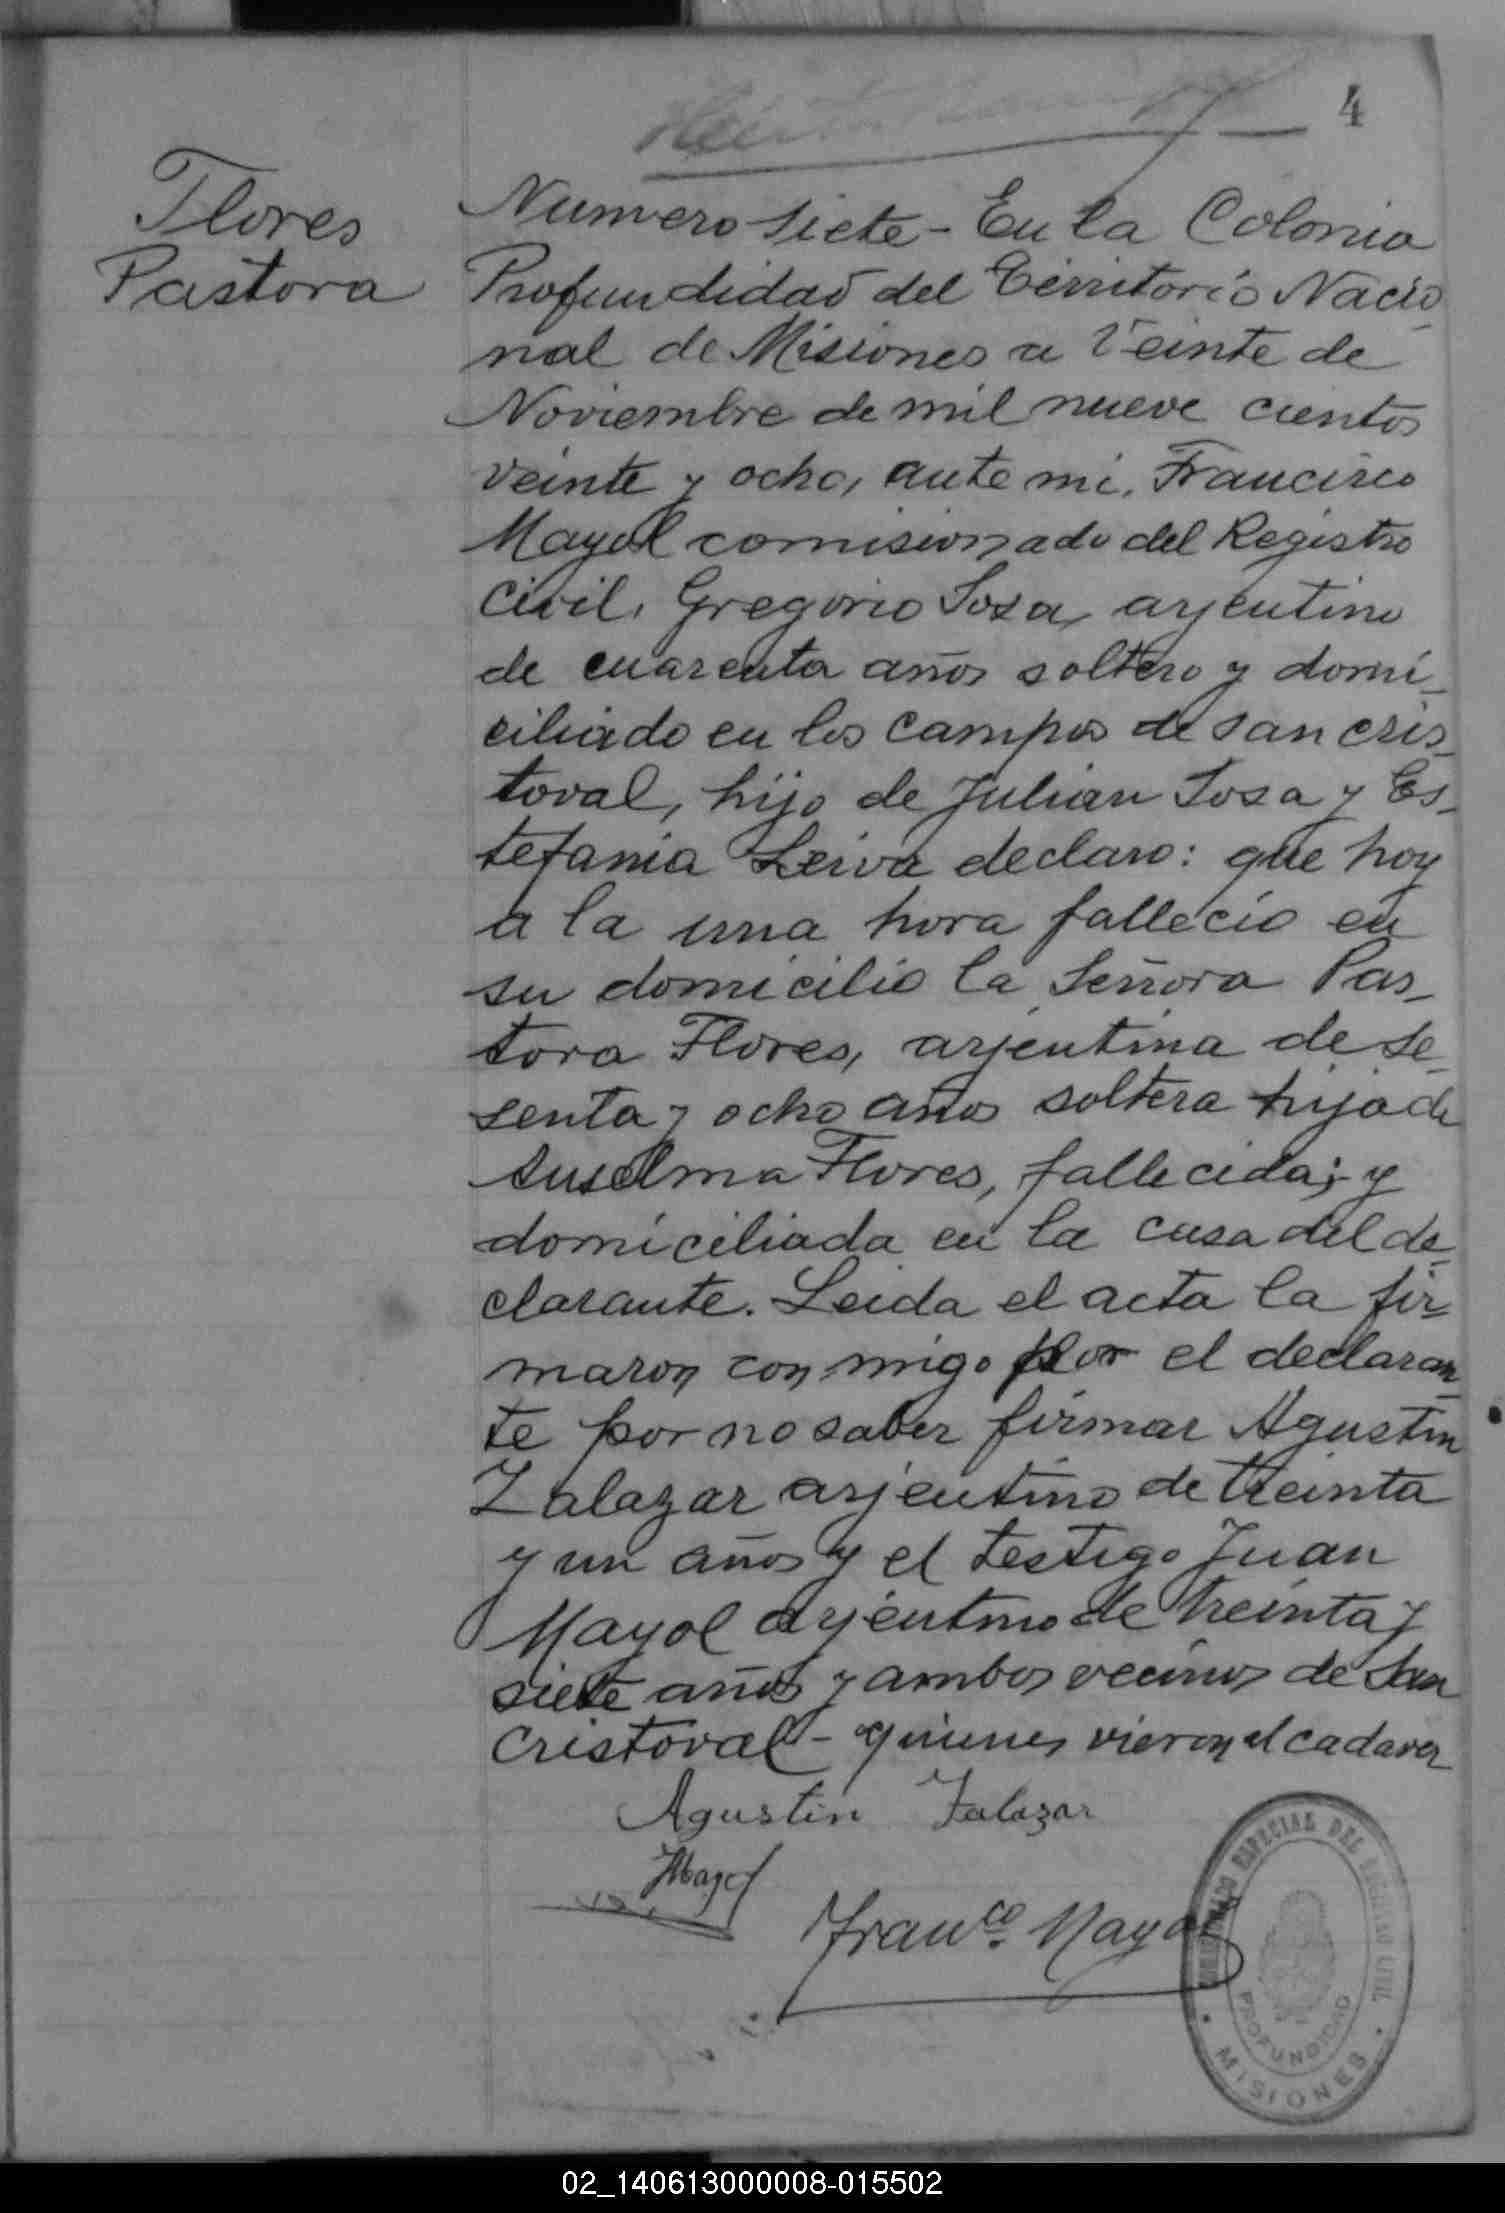 4
Flores
Pastora
Numero Siete - En la Colonia
Profundidad del Territorio Nacio
nal de Misiones a Veinte de
Noviembre de mil nueve cientos
veinte y ocho, ante mi, Francisco
Mayol comisionado del Registro
Civil, Gregorio Sosa, arjentino
de cuarenta años soltero y domi-
ciliado en los campos de san cris-
toval, hijo de Julian Sosa y Es-
tefania Leiva declaro: que hoy
a la una hora fallecio en
su domicilio la Señora Pas-
tora Flores, arjentina de se-
senta y ocho años soltera hija de
Anselma Flores, fallecida; y
domiciliada en la casa del de-
clarante. Leida el acta la fir-
maron con migo por el declaran-
te por no saber firmar Agustin
Zalazar arjentino de treinta
y un años y el testigo Juan
Mayol arjentino de treinta y
siete años y ambos vecinos de San
Cristoval - quienes vieron el cadaver
Agustin Zalazar
JMayol
Franco. Mayol
ESPECIAL DEL REGISTRO CIVIL
PROFUNDIDAD
MISIONES
02_140613000008-015502